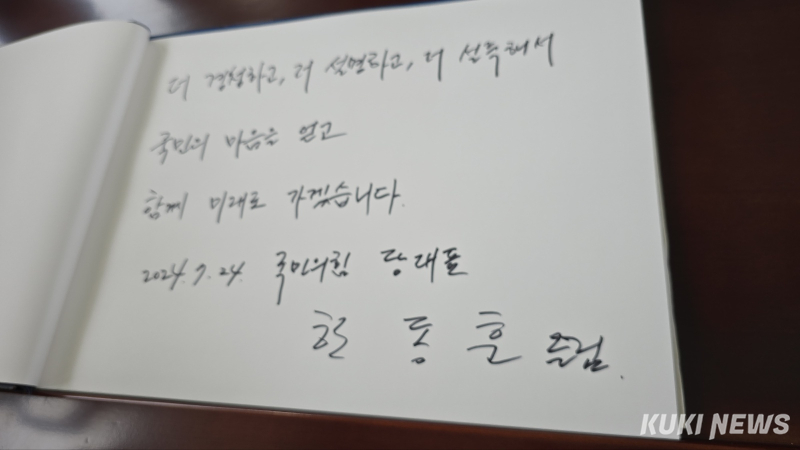 더 경청하고, 더 설명하고, 더 설득해서
국민의 마음을 얻고
함께 미래로 가겠습니다.
2024. 7. 24. 국민의힘 당대표
한 동 훈 드림.
KUKI NEWS